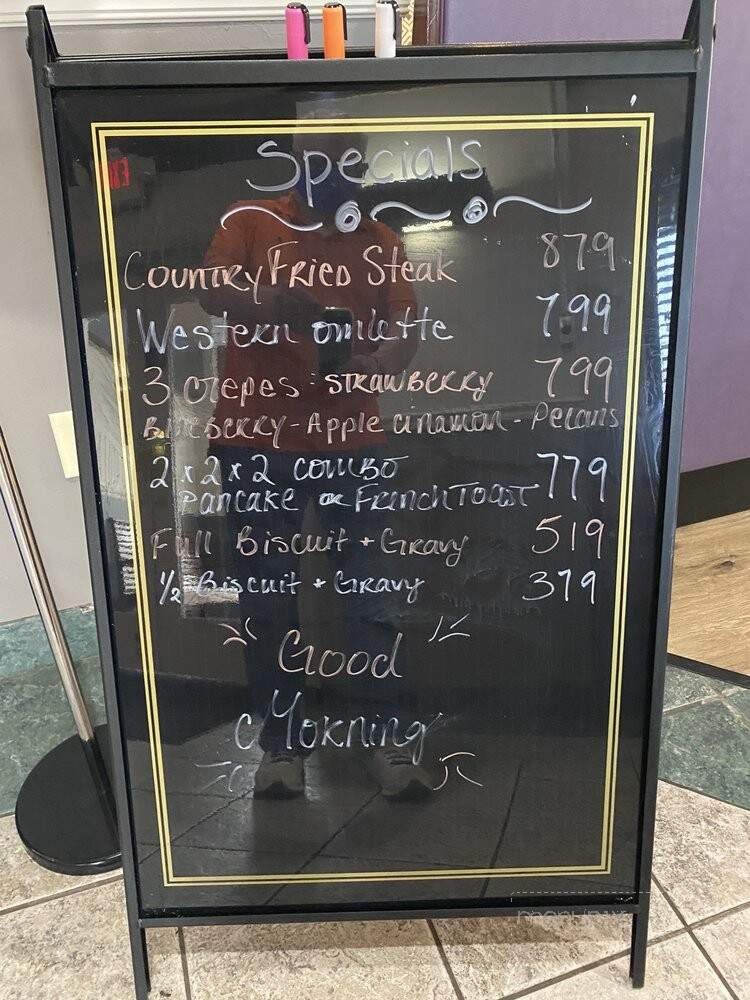 Specials
Country Fried Steak 879
Western omlette 799
3 crepes: strawberry 799
Blueberry - Apple cinamon - Pecans
2 x 2 x 2 combo 779
Pancake or French Toast
Full Biscuit + Gravy 519
1/2 Biscuit + Gravy 379
Good
Morning